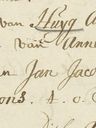 van Huyg A
van Anne
n Jan Jaco
ons. 1.0.